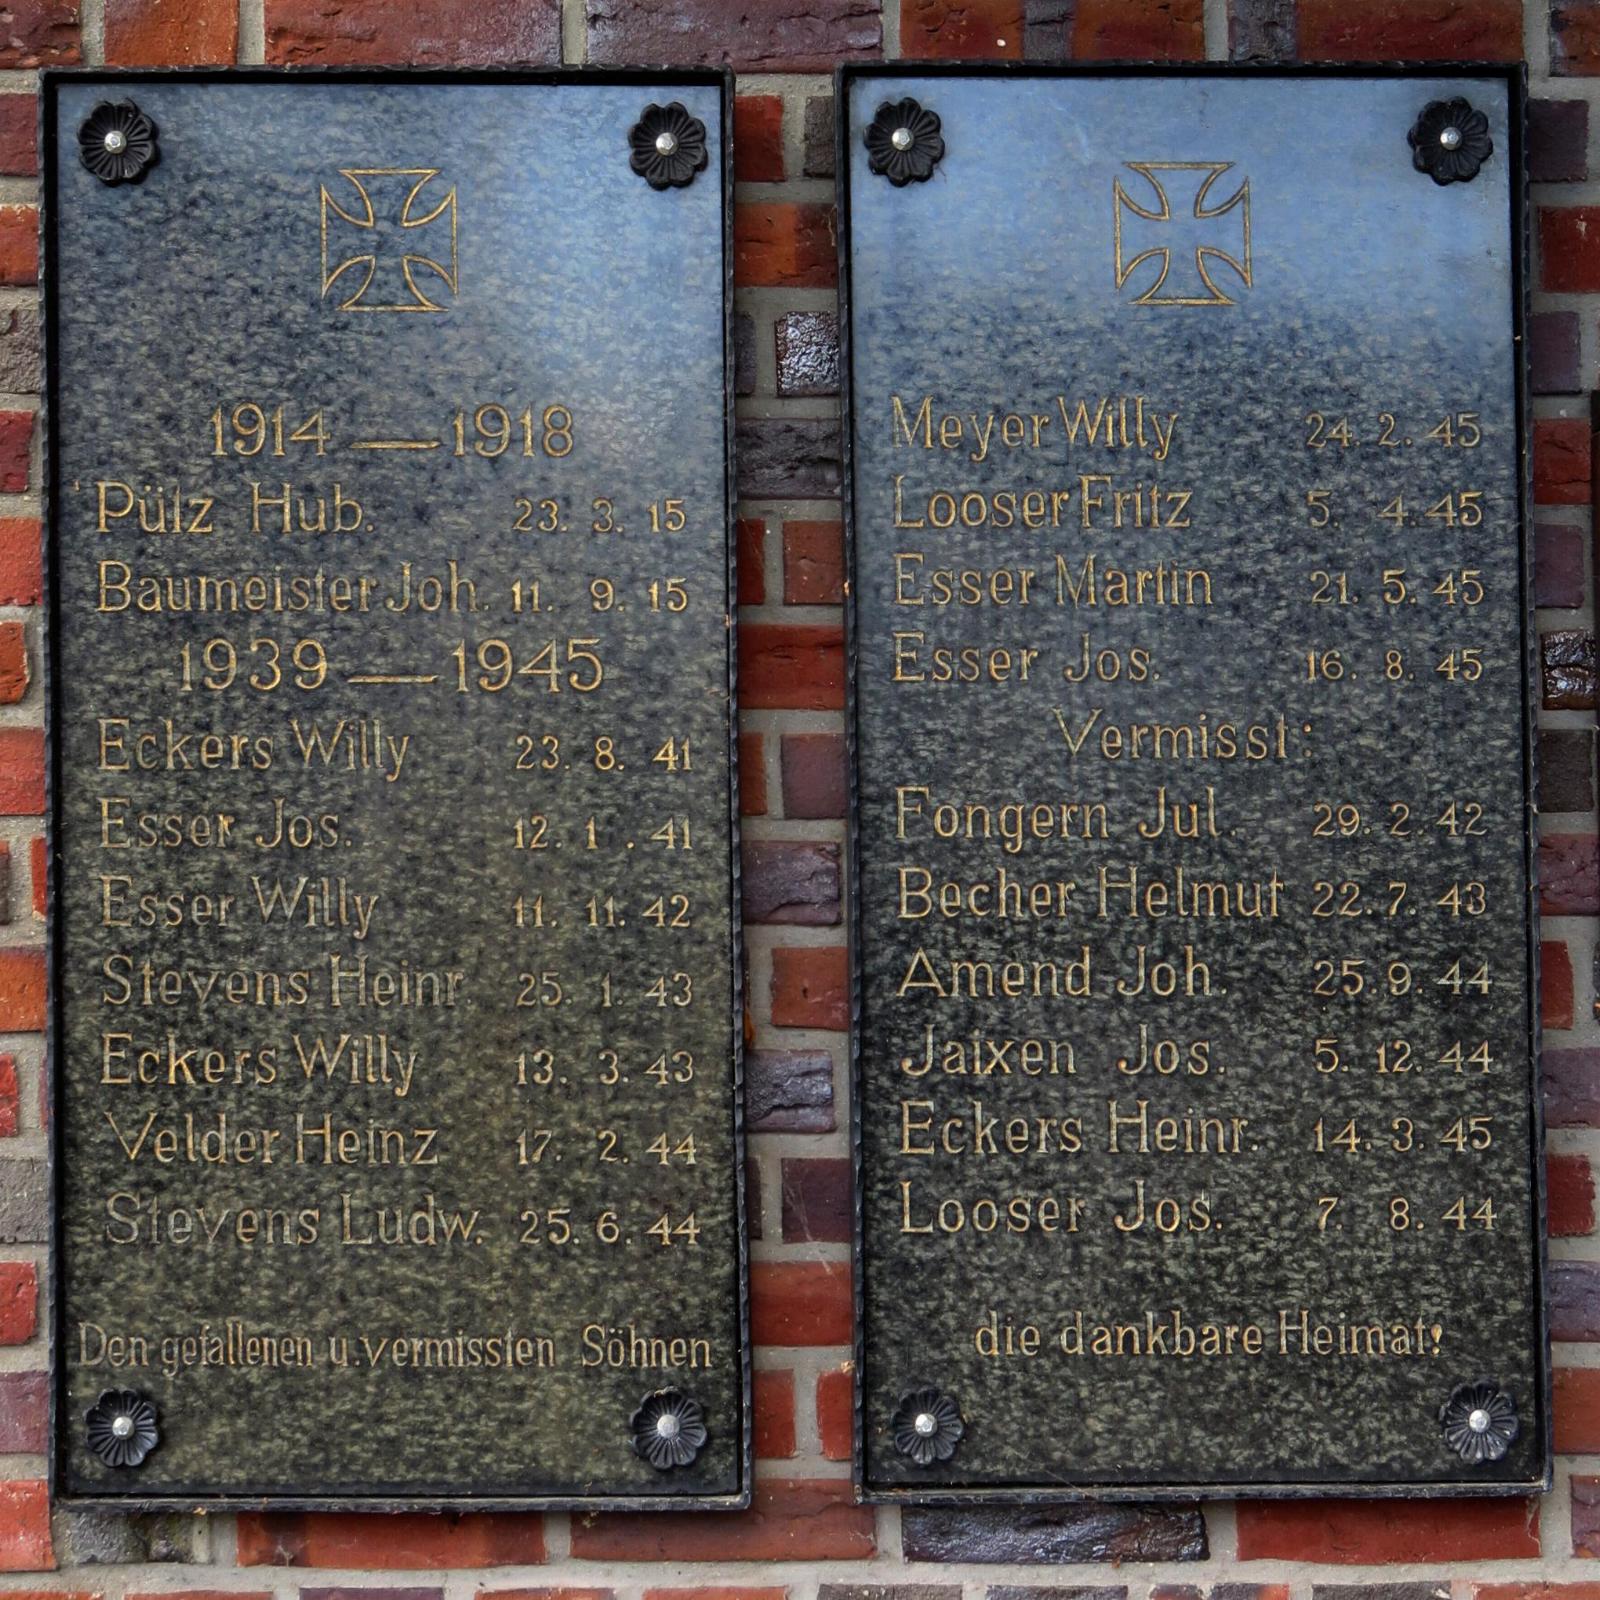 1914 — 1918
Pülz Hub. 23. 3. 15
Baumeister Joh. 11. 9. 15
1939 — 1945
Eckers Willy 23. 8. 41
Esser Jos. 12. 1. 41
Esser Willy 11. 11. 42
Stevens Heinr. 25. 1. 43
Eckers Willy 13. 3. 43
Velder Heinz 17. 2. 44
Stevens Ludw. 25. 6. 44
Den gefallenen u. vermissten Söhnen
Meyer Willy 24. 2. 45
Looser Fritz 5. 4. 45
Esser Martin 21. 5. 45
Esser Jos. 16. 8. 45
Vermisst:
Fongern Jul. 29. 2. 42
Becher Helmut 22. 7. 43
Amend Joh. 25. 9. 44
Jaixen Jos. 5. 12. 44
Eckers Heinr. 14. 3. 45
Looser Jos. 7. 8. 44
die dankbare Heimat!